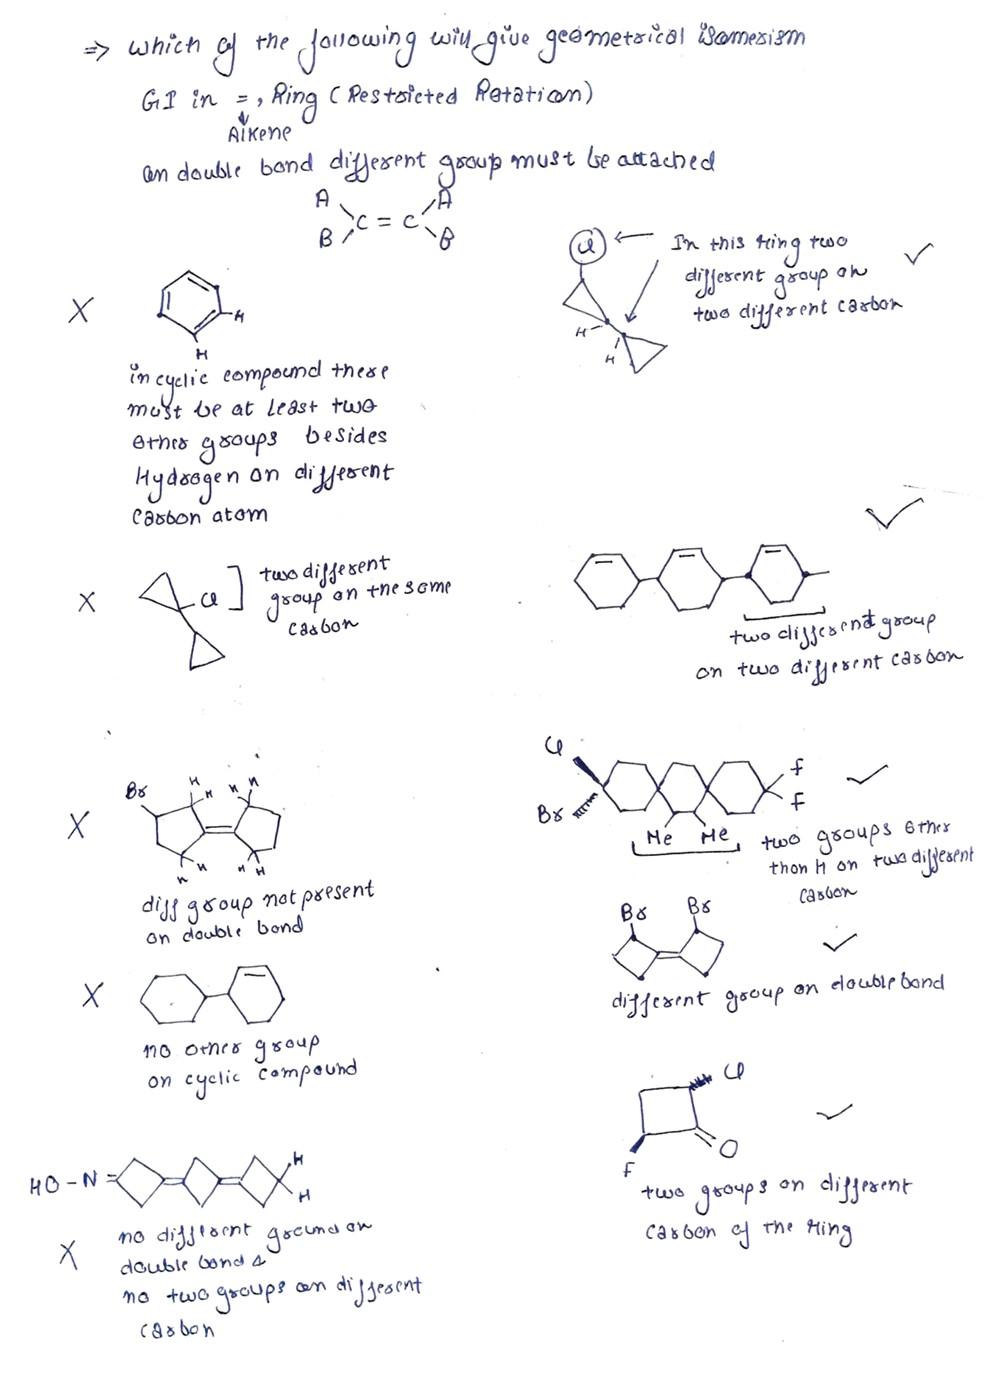 ⇒ which of the following will give geometrical isomerism
GI in = , Ring ( Restricted Rotation)
Alkene
on double bond different group must be attached
A A
C = C
B B
Cl
In this ring two
different group on
two different carbon
✓
H
H
X
H
H
in cyclic compound there
must be at least two
other groups besides
Hydrogen on different
carbon atom
✓
X
Cl
two different
group on the same
carbon
two different group
on two different carbon
X
Br
H H H H
H H H H
diff group not present
on double bond
Cl
Br
F
F
✓
Me Me
two groups other
than H on two different
carbon
X
no other group
on cyclic compound
Br Br
✓
different group on double bond
Cl
O
F
✓
two groups on different
carbon of the ring
HO - N
H
H
X
no different ground on
double bond &
no two groups on different
carbon